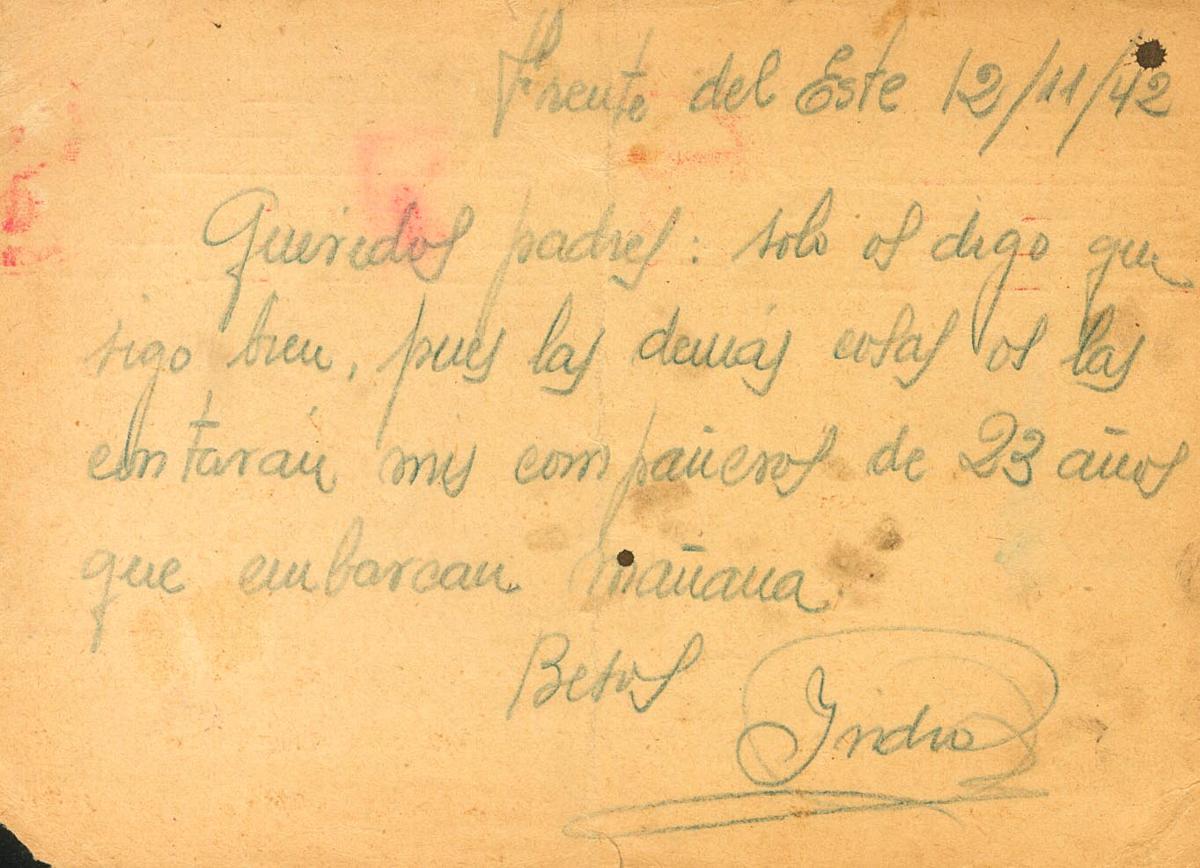 Frente del Este 12/11/42
Queridos padres: solo os digo que
sigo bien, pues las demás cosas os las
contarán mis compañeros de 23 años
que embarcan mañana.
Besos